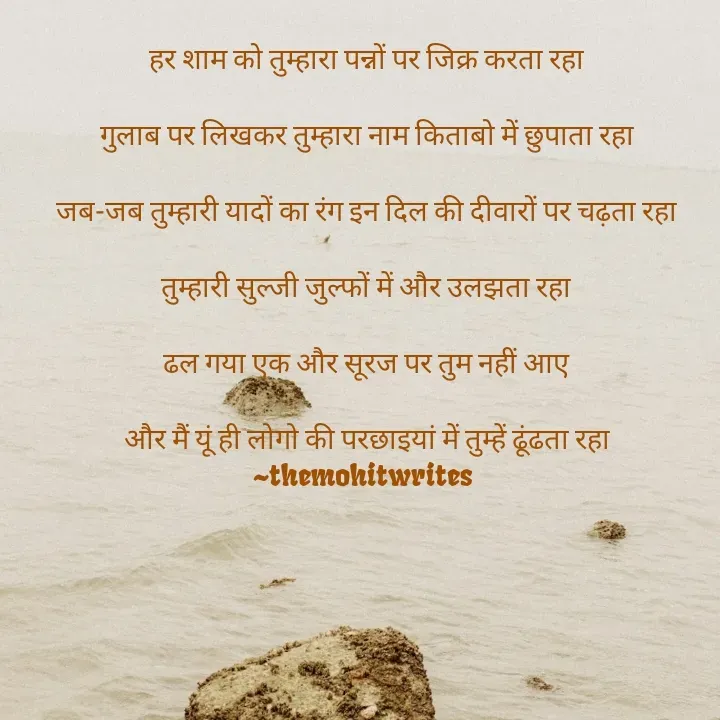 हर शाम को तुम्हारा पन्नों पर जिक्र करता रहा
गुलाब पर लिखकर तुम्हारा नाम किताबो में छुपाता रहा
जब-जब तुम्हारी यादों का रंग इन दिल की दीवारों पर चढ़ता रहा
तुम्हारी सुल्जी जुल्फों में और उलझता रहा
ढल गया एक और सूरज पर तुम नहीं आए
और मैं यूं ही लोगो की परछाइयां में तुम्हें ढूंढता रहा
~themohitwrites